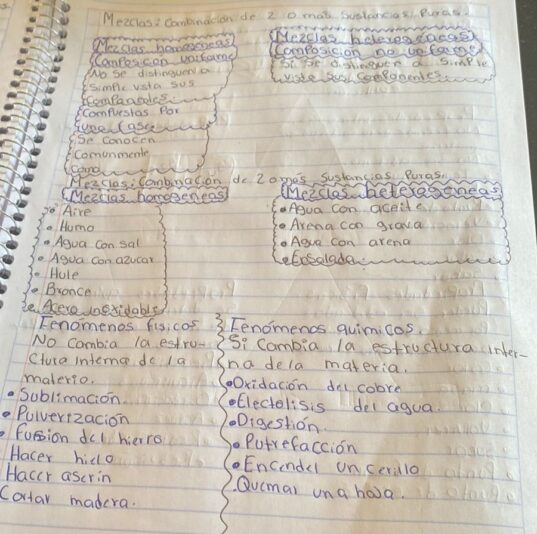 Mezclas: Combinación de 2 o más Sustancias Puras.
Mezclas homogeneas
Composición uniforme
No se distinguen a
simple vista sus
Componentes
Compuestas Por
Se Conocen
Comunmente
Como
Mezclas heterogeneas
Composición no uniforme
Si se distinguen a simple
vista sus Componentes
Mezclas: Combinación de 2 o más Sustancias Puras.
Mezclas homogeneas
Aire
Humo
Agua con sal
Agua con azucar
Hule
Bronce
Acero inoxidable
Mezclas heterogeneas
Agua con aceite
Arena con grava
Agua con arena
Ensalada
Fenómenos físicos
No Cambia la estru-
ctura Interna de la
materia.
Sublimación
Pulverización
Fusión del hierro
Hacer hielo
Hacer aserrin
Cortar madera.
Fenómenos quimicos.
Si Cambia la estructura inter-
na de la materia.
Oxidación del cobre
Electolisis del agua.
Digestión.
Putrefacción
Encender un cerillo
Quemar una hoja.